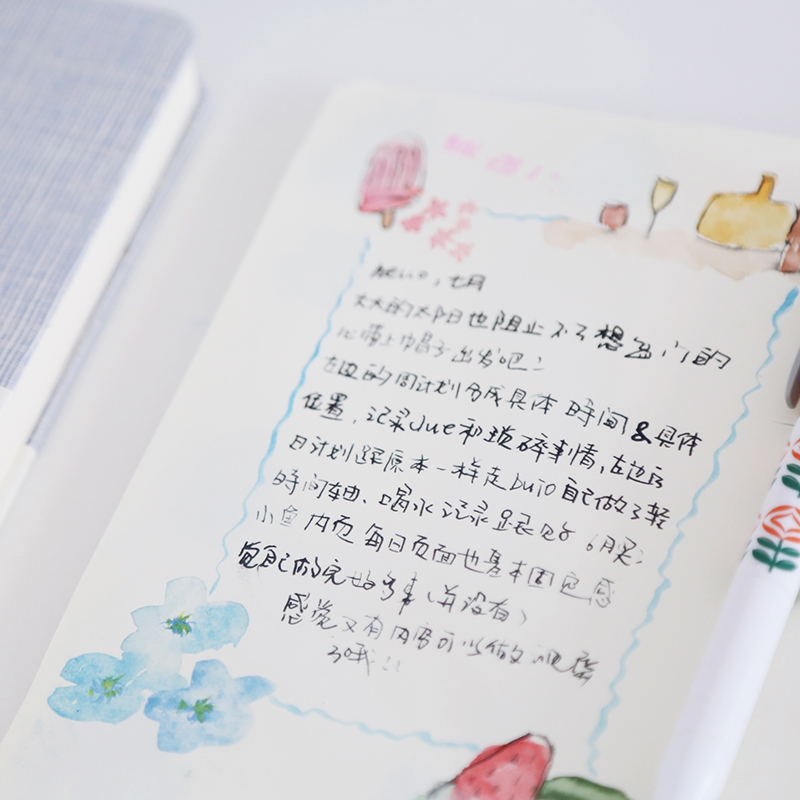 Hello, 七月
大大的太阳也阻止不了想出门的
心 上帽子出发吧!
左边的周计划分成具体时间&具体
位置, 记录due和琐碎事情, 左边
日计划 原本一样走bujo自己做了
时间轴、喝水记录 6月
小鱼内页每日页面也基本固定感
觉自己做完好多事(并没有)
感觉又有内容可以做视
了哦!!